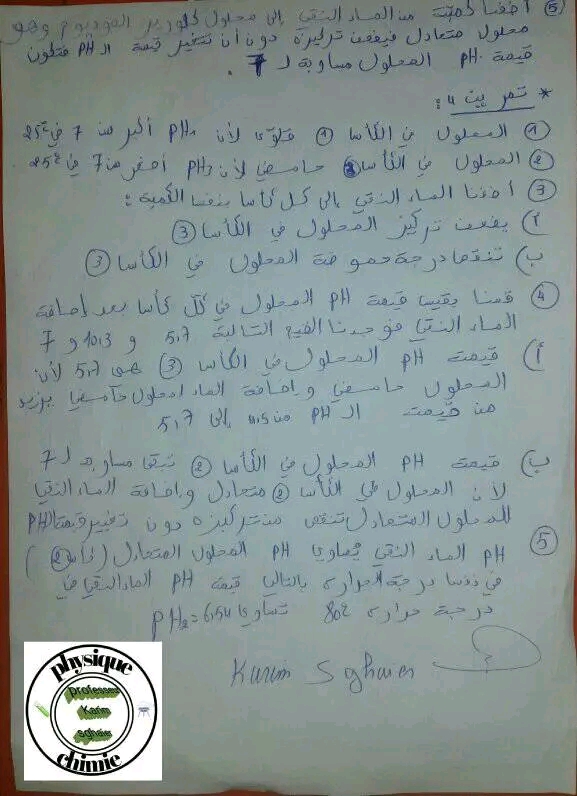 ⑤ أضفنا كمية من الماء النقي إلى محلول كلورير الصوديوم وهو
محلول متعادل فيغفت تركيزه دون أن تتغير قيمة الـ PH فتكون
قيمة PH المحلول مساوية لـ 7 .
* تمرين 4 :
① المحلول في الكأس ① قلوي لأن PH₁ أكبر من 7 في 25°C
② المحلول في الكأس ③ حامضي لأن PH₃ أصغر من 7 في 25°C
③ أضفنا الماء النقي إلى كل كأس بنفس الكمية :
أ) يغفت تركيز المحلول في الكأس ③
ب) تنقص درجة حموضة المحلول في الكأس ③
④ قمنا بقيس قيمة PH المحلول في كل كأس بعد إضافة
الماء النقي فوجدنا القيم التالية 5,7 و 10,3 و 7
أ) قيمة PH المحلول في الكأس ③ هي 5,7 لأن
المحلول حامضي وإضافة الماء لمحلول حامضي يزيد
من قيمة الـ PH من 4,5 إلى 5,7
ب) قيمة PH المحلول في الكأس ② تبقى مساوية لـ 7
لأن المحلول في الكأس ② متعادل وإضافة الماء النقي
للمحلول المتعادل تنقص من تركيزه دون تغيير قيمة PH
⑤ PH الماء النقي يساوي PH المحلول المتعادل (كأس ②)
في نفس درجة الحرارة بالتالي قيمة PH الماء النقي في
درجة حرارة 80°C تساوي PH₂ = 6,54
Karim Sghaier
physique
professeur
Karim
sghaier
chimie